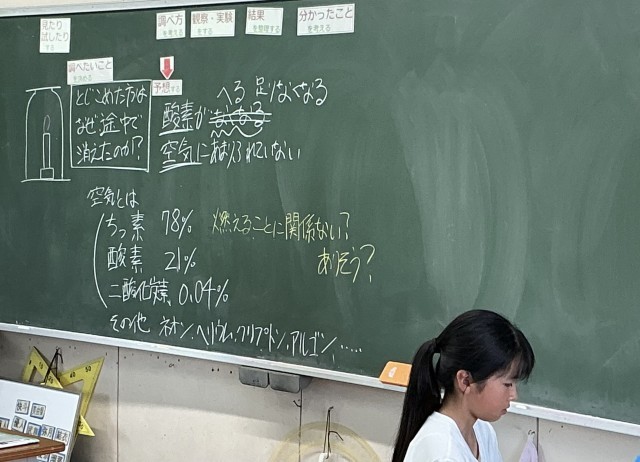 見たり
試したり
する
調べ方
を考える
観察・実験
をする
結果
を整理する
分かったこと
を考える
調べたいこと
を決める
予想する
とじこめた方は
なぜ途中で
消えたのか?
へる 足りなくなる
酸素がなくなる
空気にあまりふれていない
空気とは
ちっ素 78% 燃えることに関係ない?
酸素 21% ありそう?
二酸化炭素 0.04%
その他 ネオン、ヘリウム、クリプトン、アルゴン、……